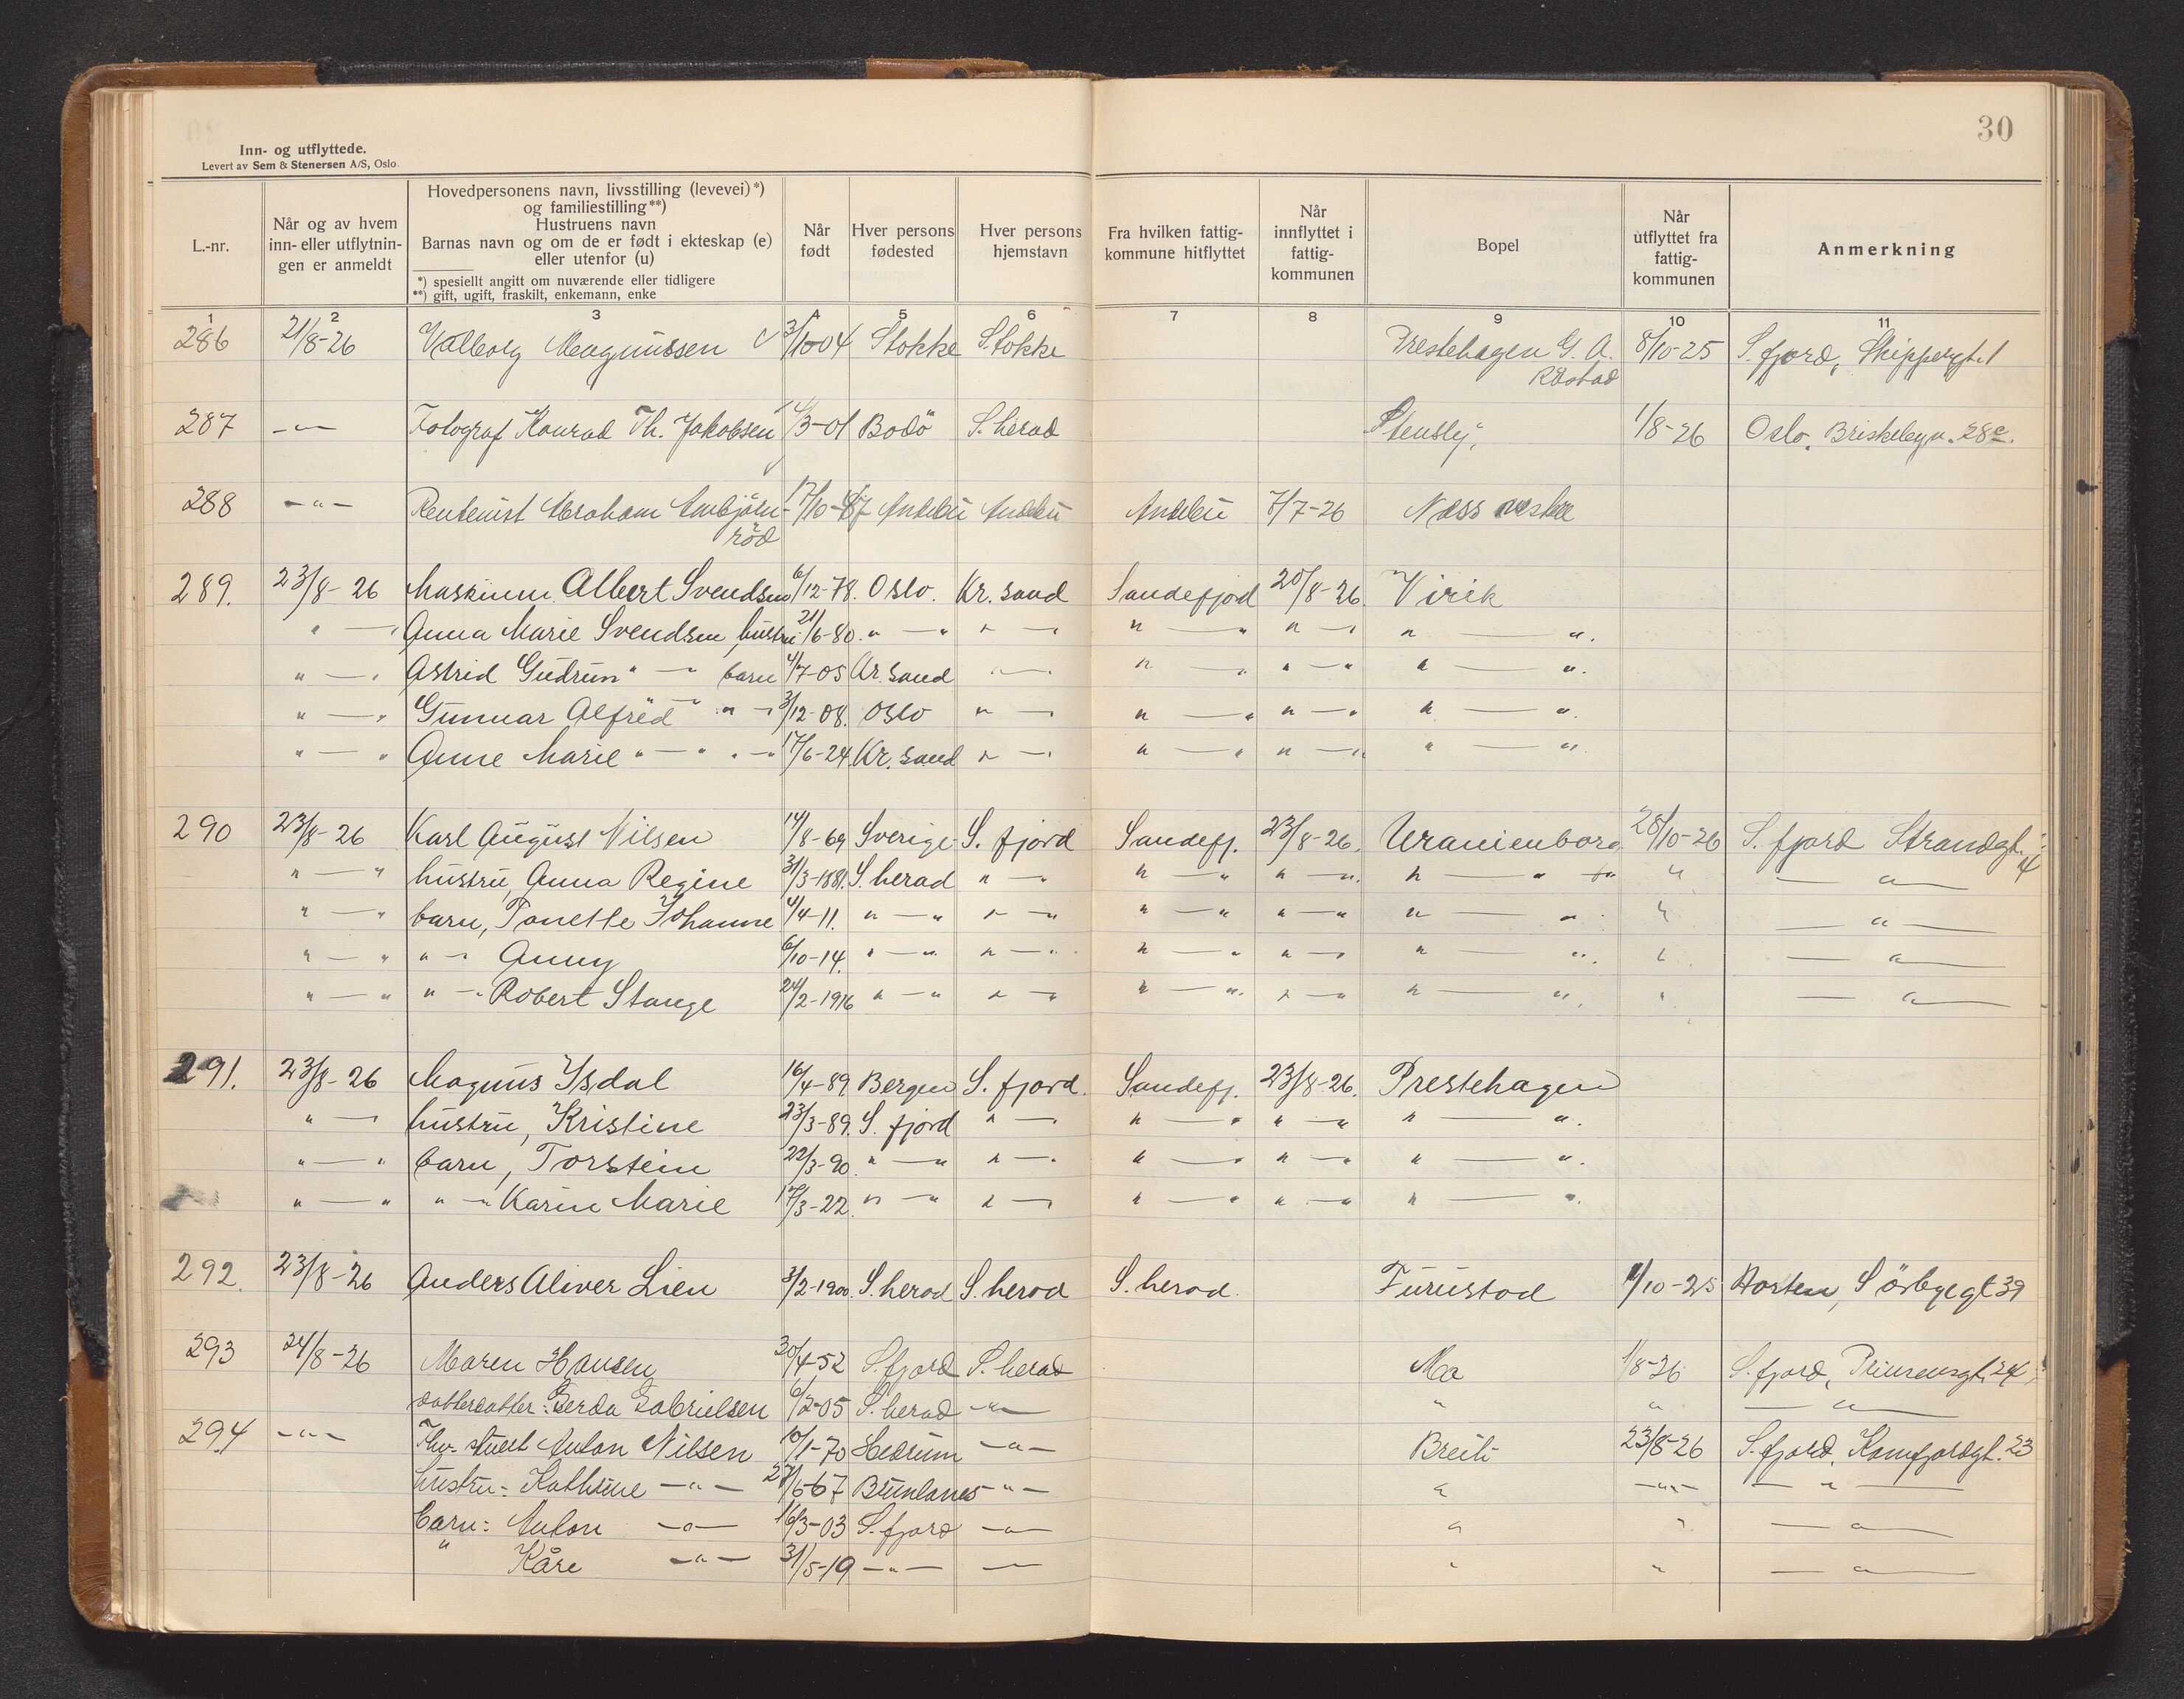 30
Inn- og utflyttede.
Levert av Sem & Stenersen A/S, Oslo.
L.-nr.
Når og av hvem inn- eller utflytnin- gen er anmeldt
Hovedpersonens navn, livsstilling (levevei)*)
og familiestilling**)
Hustruens navn
Barnas navn og om de er født i ekteskap (e)
eller utenfor (u)
*) spesiellt angitt om nuværende eller tidligere
**) gift, ugift, fraskilt, enkemann, enke
Når født
Hver persons fødested
Hver persons hjemstavn
Fra hvilken fattig- kommune hitflyttet
Når innflyttet i fattig- kommunen
Bopel
Når utflyttet fra fattig- kommunen
Anmerkning
1 2 3 4 5 6 7 8 9 10 11
286 21/8-26 Valborg Magnussen 3/10-04 Stokke Stokke Prestehagen G. A. 8/10-25 S. fjord, Skippergt. 1
Råstad
287 -"- Fotograf Konrad Th. Jakobsen /3-01 Bodö S. herad Stensly. 1/8-26 Oslo, Briskebyv. 28c.
288 -"- Rentenist Abraham Anbjörn- 17/10-67 Andebu Andebu Andebu 7/7-26 Næss vestre
röd
289. 23/8-26 Maskinm. Albert Svendsen 6/12-78. Oslo. Kr. sand Sandefjord 20/8-26. Virik
" — " Anna Marie Svendsen, hustru 21/6-80. " — " " — " " — " " — " " — ".
" — " Astrid Gudrun " — " barn 4/7-05 Kr. sand " — " " — " " — " " — ".
" — " Gunnar Alfred " — " " — " 3/12-08. Oslo " — " " — " " — " " — ".
" — " Anne Marie " — " " — " 17/6-24. Kr. sand " — " " — " " — " " — ".
290 23/8-26 Karl August Nilsen 14/8-69 Sverige S. fjord Sandefj. 23/8-26. Uranienborg 28/10-26 S. fjord Strandgt. 4
" — " hustru, Anna Regine 31/3-1881. S. herad " — " " — " " — ". " — " " — " —
" — " barn, Tonette Johanne 4/4-11. " — " " — " " — " " — " " — " " — " —
" — " " — " Anny 6/10-14. " — " " — " " — " " — " " — ". " — " —
" — " " — " Robert Stange 24/2-1916 " — " " — " " — " " — " " — ". " — " —
291. 23/8-26 Magnus Ysdal 16/4-89 Bergen S. fjord. Sandefj. 23/8-26. Prestehagen
" — " hustru, Kristine 23/3-89. S. fjord " — " " — " " — " " — ".
" — " barn, Torstein 22/3-20. " — " " — " " — " " — " " — ".
" — " " — " Karin Marie 17/3-22. " — " " — " " — " " — " " — ".
292. 23/8-26 Anders Aliver Lien 3/2-1900. S. herad S. herad S. herad. Furustad /10-25 Horten, Sörbygt 39
293 24/8-26 Maren Hansen 30/4-52 S. fjord S. herad Mo 1/8-26 S. fjord, Prinsensgt. 24
datterdatter: Gerda Gabrielsen 6/2-05 S. herad -"- " " — " —
294 -"- Anton Nilsen 10/1-70 Hedrum -"- Breili 23/8-26 S. fjord, Kamfjordgt. 23
hustru: Kathrine -"- 27/6-67 Brunlanes -"- " -"- — " —
Barn: Anton -"- 16/3-03 S. fjord -"- " " — " —
" Kåre -"- 31/5-19 -"- — " " — " —